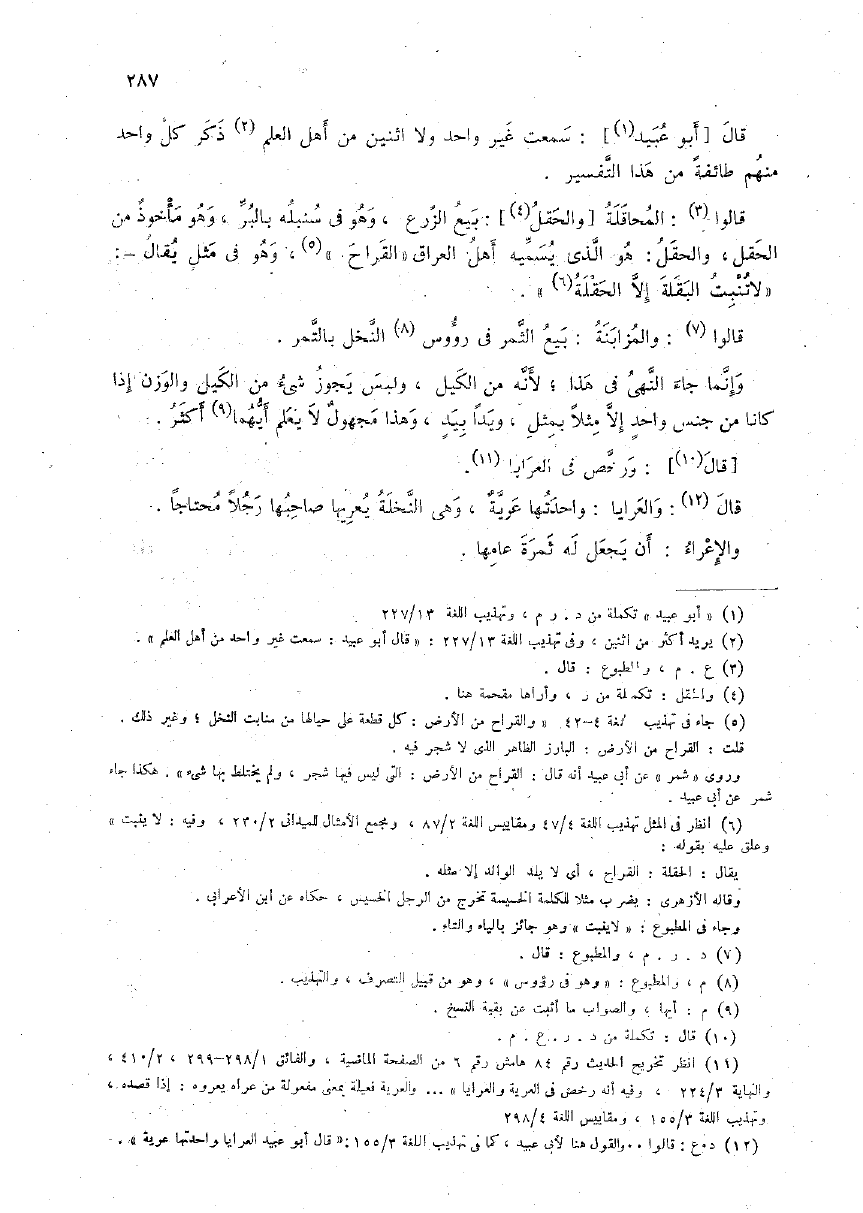 ٢٨٧
قالَ [ أَبو عُبَيد(١)] : سَمعت غَير واحد ولا اثنين من أَهل العلم (٢) ذَكَر كلُّ واحد
منهُم طائفةً من هَذا التَّفسير .
قالوا (٣) : المُحاقَلَةُ [ والحَقلُ(٤)] : بَيعُ الزَّرع ، وَهُو فى سُنبلُه بالبُرِّ ، وَهُو مَأْخوذٌ من
الحَقل ، والحقَلُ : هُو الَّذى يُسَمِّيه أَهلُ العراق « القَراحَ »(٥) ، وَهُو فى مَثل يُقالُ – :
« لاتُنْبِتُ البَقلَةَ إِلاَّ الحَقْلَةُ(٦) » .
قالوا (٧) : والمُزابَنَةُ : بَيعُ الثَّمر فى رؤُوس (٨) النَّخل بالتَّمر .
وَإِنَّما جاءَ النَّهىُ فى هَذا ؛ لأَنَّه من الكَيل ، وليسَ يَجوزُ شىءُ من الكَيل والوَزن إذا
كانا من جنس واحدٍ إِلاَّ مِثلاً بمِثلٍ ، ويَداً بِيَدٍ ، وَهذا مَجهولٌ لاَ يَعلم أَيُّهُما(٩) أَكثَرُ .
[ قالَ(١٠)] : وَرخَّص فى العرَايا (١١).
قالَ (١٢) : وَالعَرايا : واحدَتُها عَريَّةٌ ، وَهى النَّخلَةُ يُعريها صاحبُها رَجُلاً مُحتاجاً .
والإِعْراءُ : أَن يَجعَل لَه ثَمرَةَ عامِها .
(١) « أبو عبيد » تكملة من د . ر م ، وتهذيب اللغة ٢٢٧/١٣
(٢) يريد أكثر من اثنين ، وفى تهذيب اللغة ٢٢٧/١٣ : « قال أبو عبيد : سمعت غير واحد من أهل العلم » .
(٣) ع . م ، والمطبوع : قال .
(٤) والحقل : تكملة من ر ، وأراها مقحمة هنا .
(٥) جاء فى تهذيب لغة ٤–٤٢ « والقراح من الأرض : كل قطعة على حيالها من منابت النخل ؛ وغير ذلك .
قلت : القراح من الأرض : البارز الظاهر الذى لا شجر فيه .
وروى « شمر » عن أبى عبيد أنه قال : القراح من الأرض : التى ليس فيها شجر ، ولم يختلط بها شىء » . هكذا جاء
شمر عن أبى عبيد .
(٦) انظر فى المثل تهذيب اللغة ٤٧/٤ ومقاييس اللغة ٨٧/٢ ، ومجمع الأمثال للميدانى ٢٣٠/٢ ، وفيه : لا ينبت »
وعلق عليه بقوله :
يقال : الحقلة : القراح ، أى لا يلد الوالد إلا مثله .
وقاله الأزهرى : يضرب مثلا للكلمة الخسيسة تخرج من الرجل الخسيس ، حكاه عن ابن الأعرابى .
وجاء فى المطبوع : « لاينبت » وهو جائز بالياء والتاء .
(٧) د . ر . م ، والمطبوع : قال .
(٨) م ، والمطبوع : « وهو فى رؤوس » ، وهو من قبيل التصرف ، والتهذيب .
(٩) م : أيها ، والصواب ما أثبت عن بقية النسخ .
(١٠) قال : تكملة من د . ر . ع . م .
(١١) انظر تخريج الحديث رقم ٨٤ هامش رقم ٦ من الصفحة الماضية ، والفائق ٢٩٨/١–٢٩٩ ، ٤١٠/٢ ،
والنهاية ٢٢٤/٣ ، وفيه أنه رخص فى العرية والعرايا » ... والعرية فعيلة بمعنى مفعولة من عراه يعروه : إذا قصده ،
وتهذيب اللغة ١٥٥/٣ ، ومقاييس اللغة ٢٩٨/٤
(١٢) د.ع : قالوا . . والقول هنا لأبى عبيد ، كما فى تهذيب اللغة ١٥٥/٣ :« قال أبو عبيد العرايا واحدتها عرية » .